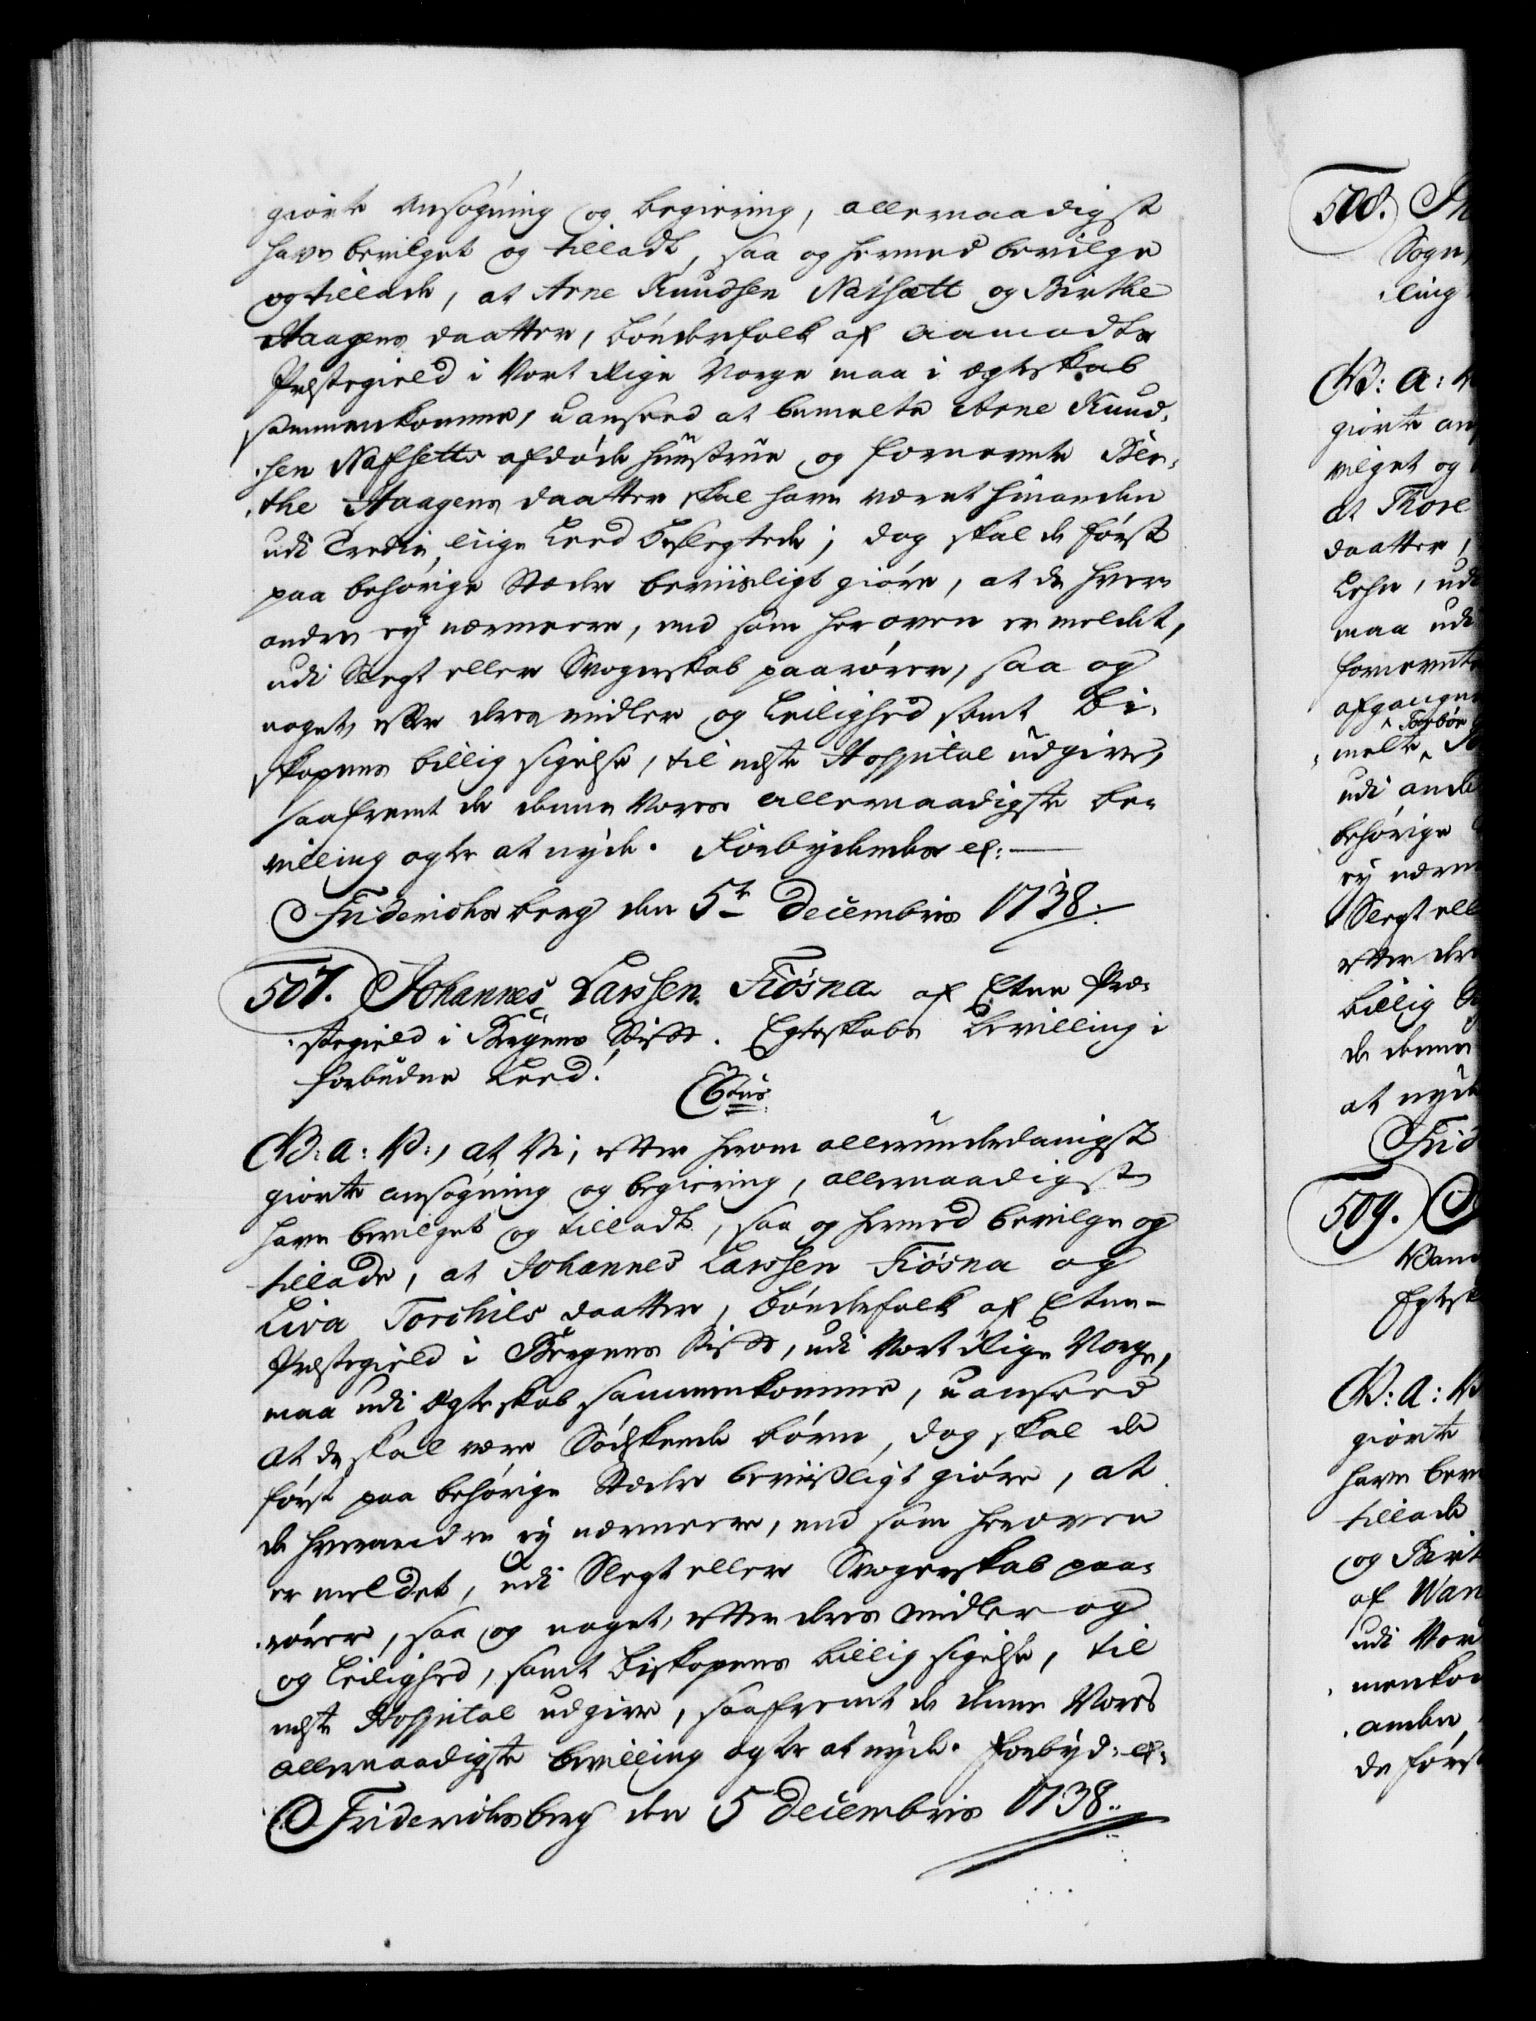 giorte Ansøgning og begiering, allernaadigst
have bevilget og tilladt, saa og hermed bevilge
og tillade, at Arne Knudsen Natsætt og Birthe
Haagens daatter, bønderfolk af Aamodts
Præstegield i Vort Rige Norge maa i Egteskab
sammenkomme, uanseed at bemelte Arne Knud-
sen Nafsetts afdøde Hüüstrüe og fornevnte Bir-
the Haagens daatter skal have været hinanden
udi Tredie liige Leed Beslegtede; dog skal de først
paa behørige Stæder beviisligt giøre, at de hver-
andre ey nærmere, end som her oven er meldet,
udi Slegt eller Svogerskab paarører, saa og
noget efter deres midler og Leilighed samt Bi-
skopens billig sigelse, til neste Hospital udgive,
saafremt de denne Vores allernaadigste Be-
villing agte at nyde. Forbydendes etc:
Friderichsberg den 5te Decembris 1738.
507. Johannes Larssen Fiøsna af Etne Præ-
stegield i Bergens Stift. Egteskabs Bevilling i
forbudne Leed.
C6tus
V: a: V:, at Vi, efter herom allerunderdanigst
giorte ansøgning og begiering, allernaadigst
have bevilget og tilladt, saa og hermed bevilge og
tillade, at Johannes Larssen Fiøsna og
Liva Torchils daatter, bønderfolk af Etne-
Præstegield i Bergens Stift, udi Vort Rige Norge,
maa udi Egteskab sammenkomme, uanseed
at de skal være Sødskende børn, dog skal de
først paa behørige Stæder beviisligt giøre, at
de hverandre ey nærmere, end som heroven
er meldet, udi Slegt eller Svogerskab paa-
rører, saa og noget, efter deres midler og
og leilighed, samt Biskopens billig sigelse, til
neste Hospital udgive, saafremt de denne Vores
allernaadigste bevilling agte at nyde. Forbyd: etc:
Friderichsberg den 5 Decembris 1738.
508.
Sogn
ling
V: a: V
giorte an
vilget og
at Thore
daatter,
Lehn, udi
maa udi
fornevnte
afgangne
Torbør
melte
udi ande
behørige
ey nærm
Slegt ell
efter der
billig
de denne
at nyde
Frid
509.
Egtesk
V: a: V
giorte
have bev
tillade
og Birt
af Wan
udi Vor
menkom
anden
de først